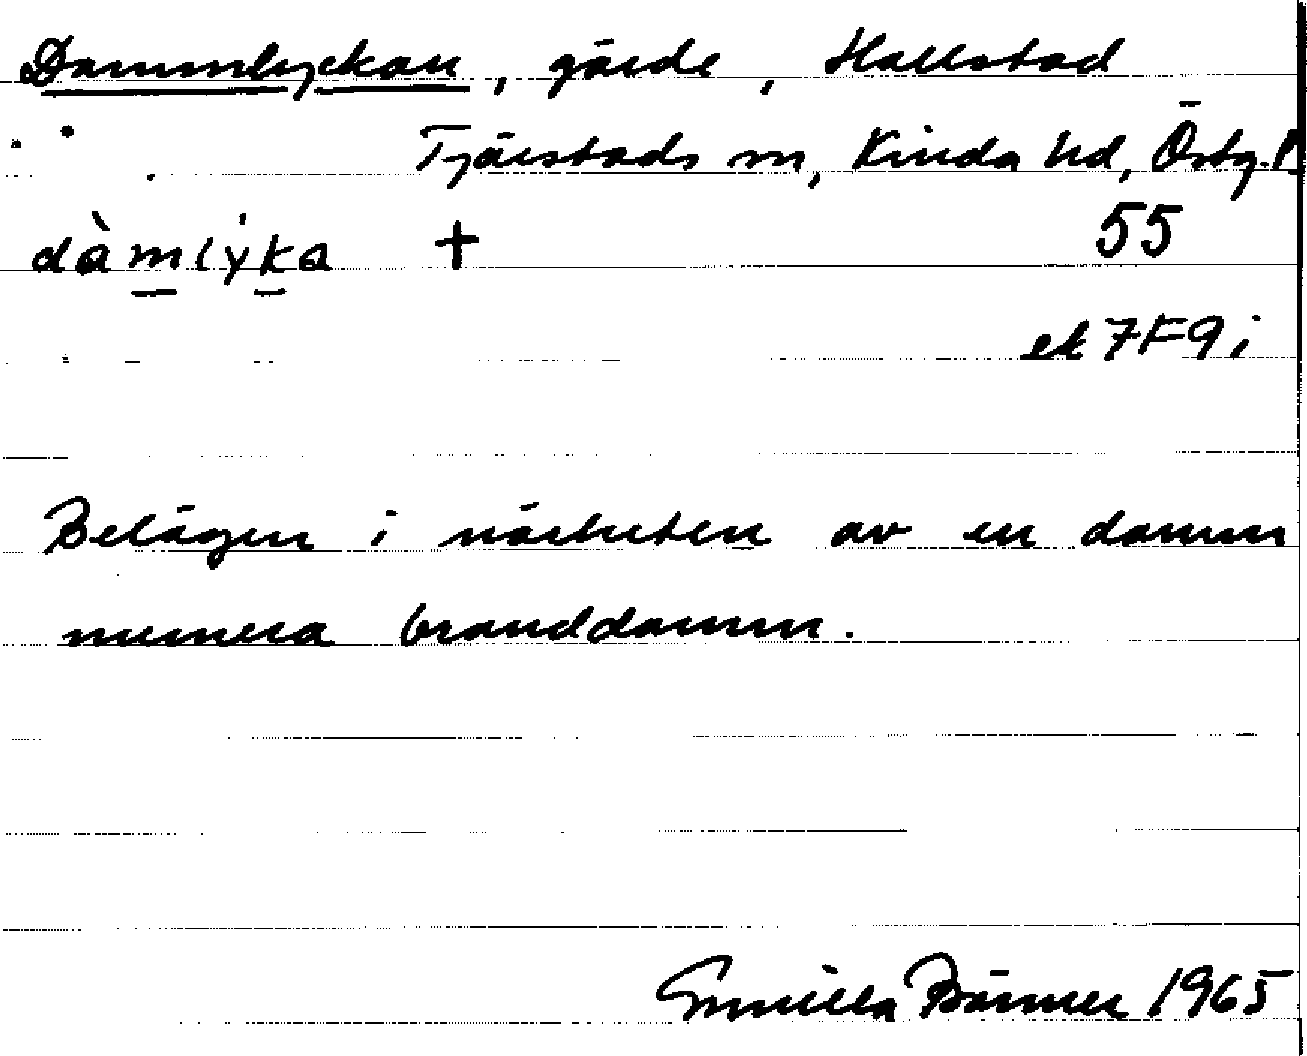 Dammlyckan, gärde, Hallstad
Tjärstads sn, Kinda hd, Östg. l
dàmlẏka † 55
ek 7F9i
Belägen i närheten av en damm
numera branddamm.
Gunilla Bärmer 1965